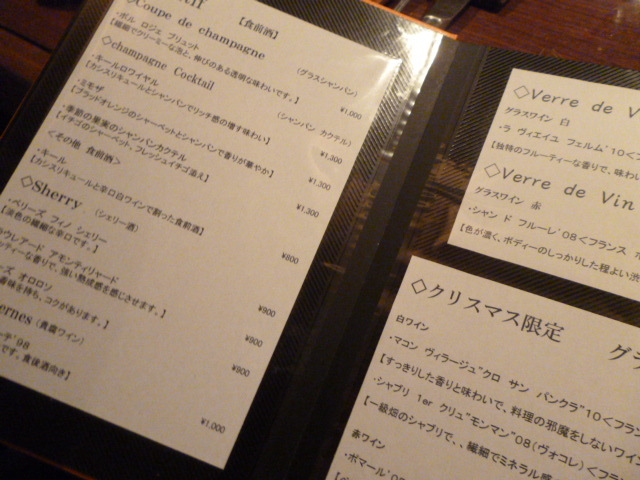 【食前酒】
◇Coupe de champagne （グラスシャンパン）
・ポル ロジェ ブリュット ¥1,900
【繊細でクリーミーな泡と、伸びのある透明な味わいです。】
◇champagne Cocktail （シャンパン カクテル）
・キールロワイヤル ¥1,300
【カシスリキュールとシャンパンでリッチ感の増す味わい】
・ミモザ ¥1,300
【ブラッドオレンジのシャーベットとシャンパンで香りが華やか】
・季節の果実のシャンパンカクテル ¥1,300
【イチゴのシャーベット、フレッシュイチゴ添え】
＜その他 食前酒＞
・キール ¥800
【カシスリキュールと辛口白ワインで割った食前酒】
◇Sherry （シェリー酒）
・ペリーズ フィノ シェリー ¥900
【淡色の繊細な辛口です。】
アモンティリャード ¥900
で、強い熟成感を感じさせます。】
オロロソ ¥900
味を持ち、コクがあります。】
ernes（貴腐ワイン）
'98 ¥1,000
です。食後酒向き】
◇Verre de V
グラスワイン 白
・ラ ヴィエイユ フェルム'10＜フ
【独特のフルーティーな香りで、味わい
◇Verre de Vin
グラスワイン 赤
・シャンド フルーレ'08＜フランス
【色が濃く、ボディーのしっかりした程よい渋
◇クリスマス限定 グラ
白ワイン
・マコン ヴィラージュ"クロ サン パンクラ"10＜フラン
【すっきりした香りと味わいで、料理の邪魔をしないワイン
・シャブリ 1er クリュ"モンマン"08（ヴォコレ）＜フラン
【一級畑のシャブリで、、繊細でミネラル感
赤ワイン
・ポマール'08